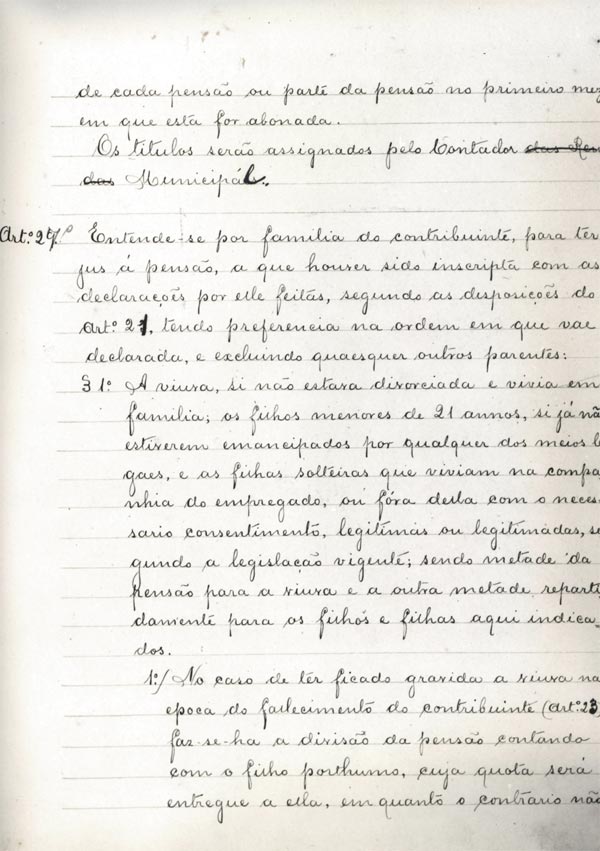 de cada pensão ou parte da pensão no primeiro mez
em que esta for abonada.
Os titulos serão assignados pelo Contador das Ren
das Municipál.
Art.º 27.º Entende-se por familia do contribuinte, para ter
jus á pensão, a que houver sido inscripta com as
declaracções por elle feitas, segundo as disposições do
art.º 21, tendo preferencia na ordem em que vae
declarada, e excluindo quaesquer outros parentes:
§ 1.º A viuva, si não estava divorciada e vivia em
familia; os filhos menores de 21 annos, si já nã
estiverem emancipados por qualquer dos meios le
gaes, e as filhas solteiras que viviam na compa
nhia do empregado, ou fóra desta com o neces
sario consentimento, legitimas ou legitimadas, se
gundo a legislação vigente; sendo metade da
pensão para a viuva e a outra metade, reparti
damente para os filhos e filhas aqui indica_
dos.
1.º/ No caso de ter ficado gravida a viuva na
epoca do fallecimento do contribuinte (art.º 23)
far-se-ha a divisão da pensão contando
com o filho posthumo, cuja quota será
entregue a ella, em quanto o contrario não